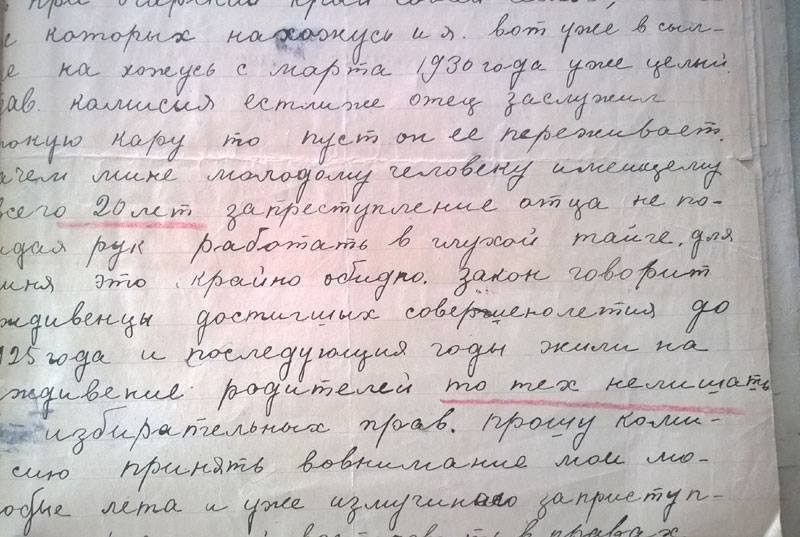 при
е которых нахожусь и я. вот уже в сыл-
е на хожусь с марта 1930 года уже целый
ав. комисия естлиже отец заслужил
окую кару то пуст он ее переживает.
ачем мине молодому человеку имеищему
всего 20 лет запреступление отца не по-
дая рук работать в глухой тайге, для
иня это крайно обидно. закон говорит
ждивенцы достигших совершенолетия до
925 года и последующия годы жили на
ждивение родителей то тех нелишать
избирательных прав. прошу коми-
сию принять вовнимание мои мо-
лодые лета и уже измучиного заприступ-
в правах